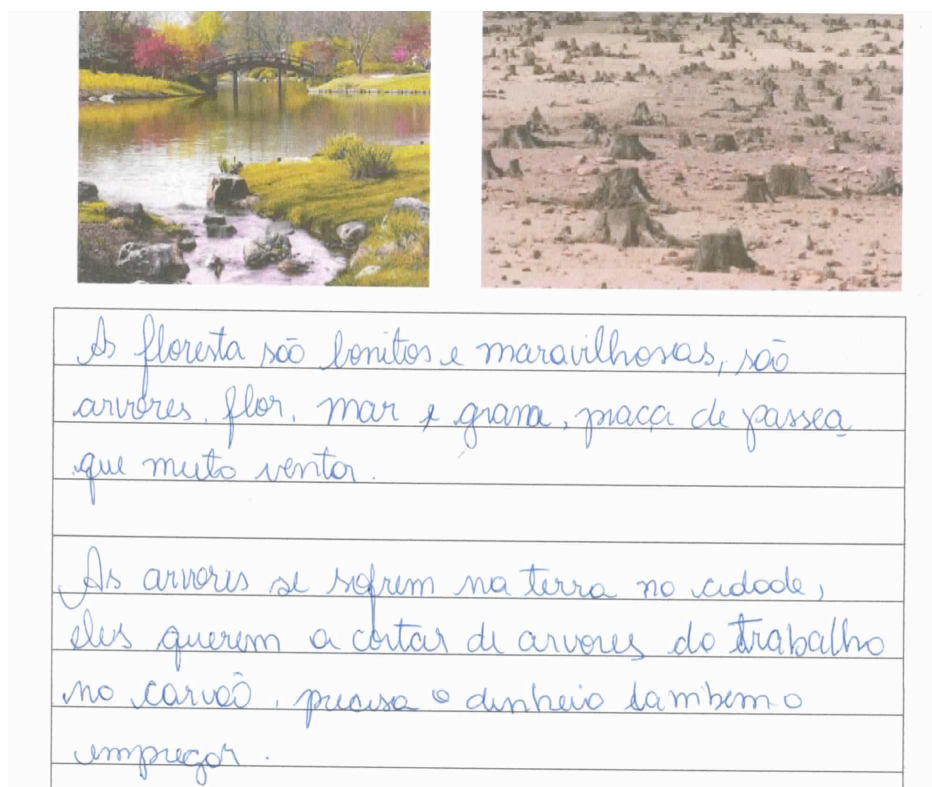 As floresta são bonitos e maravilhosas, são
arvores, flor, mar e grama, praça de passea
que muito ventor.
As arvores se sofrem na terra no cidade,
eles querem a cortar de arvores do trabalho
no carvoõ, precisa o dinheio tambem o
empregor.